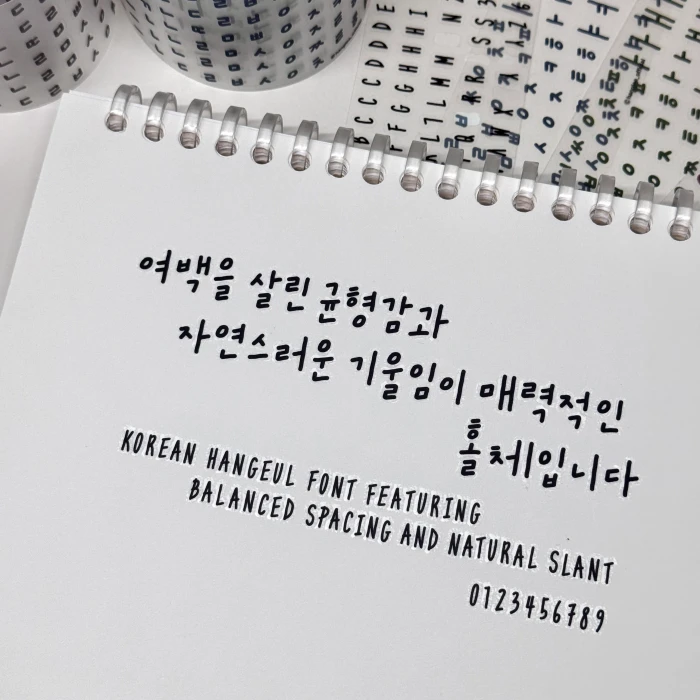 여백을 살린 균형감과
자연스러운 기울임이 매력적인
홀체입니다
KOREAN HANGEUL FONT FEATURING
BALANCED SPACING AND NATURAL SLANT
0123456789